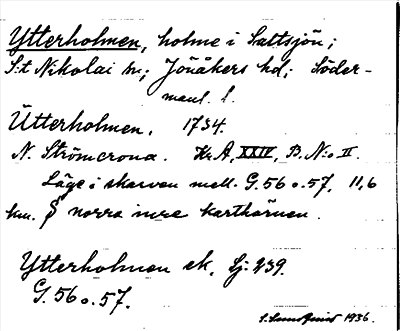 Ytterholmen, holme i Saltsjön;
S:t Nikolai sn; Jönåkers hd; Söder-
manl. l.
Ütterholmen. 1734.
N. Strömcrona. Kr. A, XXIV, B. N:o II.
Läge i skarven mell. G. 56 o. 57. 11,6
km. fr. norra inre karthörnen.
Ytterholmen ek. Gj. 239.
G. 56 o. 57.
S. Sundquist 1936.